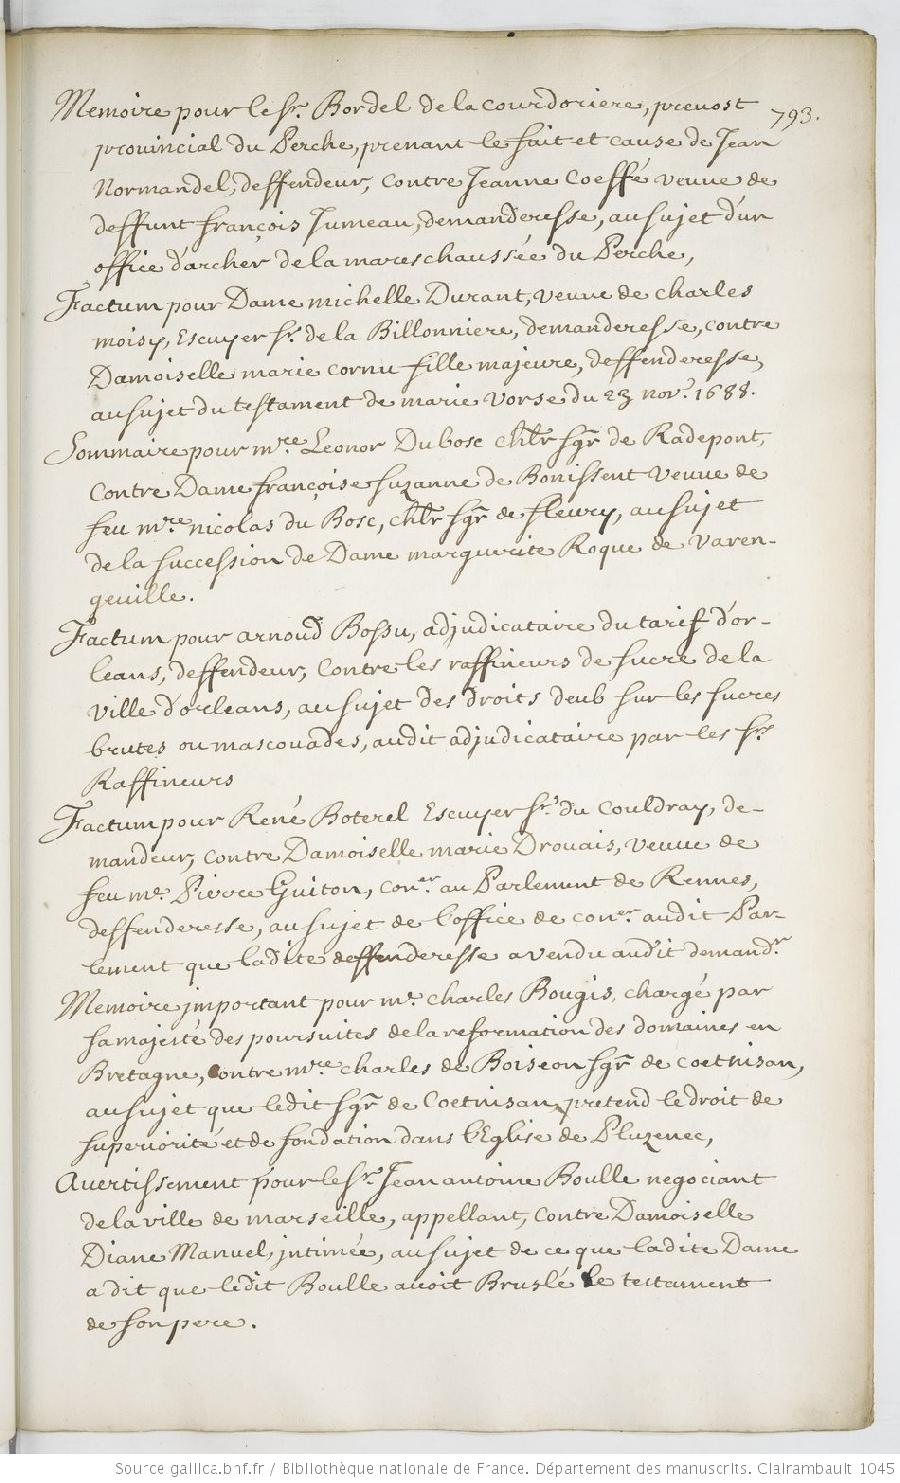 793.
Memoire pour le Sr. Bordel de la courdoriere, prevost
provincial du Perche, prenant le fait et cause de Jean
Normandel, deffendeur, contre Jeanne Coeffé veuve de
deffunt françois Jumeau, demanderesse, au sujet d'un
office d'archer de la mareschaussée du Perche,
Factum pour Dame michelle Durant, veuve de charles
moisy, Escuyer Sr. de la Billonniere, demanderesse, contre
Damoiselle marie cornu fille majeure, deffenderesse,
au sujet du testament de marie Vorse du 23 nov.e 1688.
Sommaire pour mre. Leonor Dubosc chlr sgr de Radepont,
contre Dame françoise Suzanne de Bonissent veuve de
feu mre nicolas du Bosc, chlr sgr de fleury, au sujet
de la succession de Dame marguerite Roque de Varen-
geuille.
Factum pour arnoud Bossu, adjudicataire du tarif d'or-
leans, deffendeur, contre les raffineurs de sucre de la
ville d'orleans, au sujet des droits deub sur les sucres
brutes ou mascouades, audit adjudicataire par les Srs
Raffineurs
Factum pour René Boterel Escuyer Sr. du Couldray, de-
mandeur, contre Damoiselle marie Drouais, veuve de
feu me. Pierre Guiton, coner au Parlement de Rennes,
deffenderesse, au sujet de l'office de coner audit Par-
lement que ladite deffenderesse a vendu audit demandr
Memoire important pour me. charles Bougis, chargé par
sa majesté des poursuites de la reformation des domaines en
Bretagne, contre mre charles de Boiseon sgr de coetnisan,
au sujet que ledit sgr de Coetnisan pretend le droit de
superiorité et de fondation dans l'Eglise de Pluzenec,
Avertissement pour le Sr. Jean antoine Boulle negociant
de la ville de marseille, appellant, contre Damoiselle
Diane Manuel, intimée, au sujet de ce que ladite Dame
a dit que ledit Boulle avoit Bruslé le testament
de son pere.
Source gallica.bnf.fr / Bibliothèque nationale de France. Département des manuscrits. Clairambault 1045